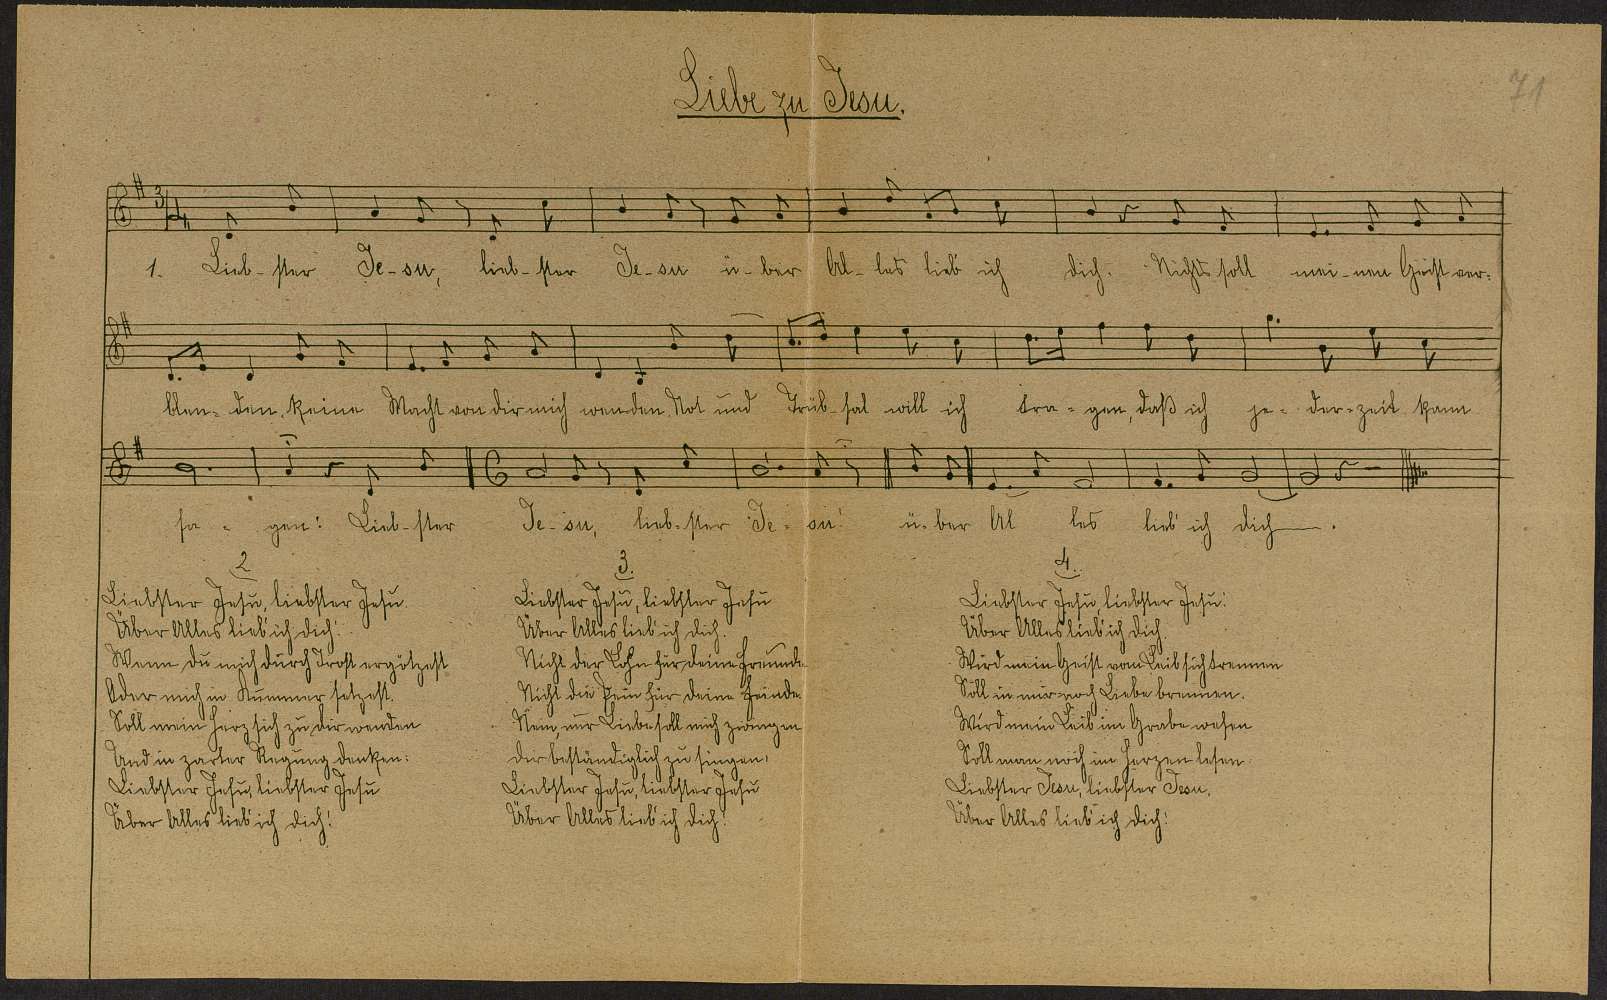 Liebe zu Jesu.
71
3
1. Lieb-ster Je-su, lieb-ster Je-su ü-ber Al-les lieb ich dich. Nichts soll mei-nen Geist ver-
blen-den, keine Macht von dir mich wenden. Not und Trüb-sal will ich tra-gen, daß ich je-der-zeit kann
sa-gen: Lieb-ster Je-su, lieb-ster Je-su! ü-ber Al les lieb' ich dich.
2
Liebster Jesu, liebster Jesu
Über Alles lieb' ich dich!
Wenn du mich durch Trost ergötzest
Oder mich in Kummer setzest.
Soll mein Herz sich zu dir wenden
Und in zarter Regung denken:
Liebster Jesu, liebster Jesu
Über Alles lieb' ich dich!
3.
Liebster Jesu, liebster Jesu
Über Alles lieb' ich dich.
Nicht der Lohn für deine Freunde
Nicht die Pein für deine Feinde
Nein, nur Liebe soll mich zwingen
dir beständiglich zu singen!
Liebster Jesu, liebster Jesu
Über Alles lieb' ich dich!
4.
Liebster Jesu, liebster Jesu!
Über Alles lieb' ich dich.
Wird mein Geist vom Leib sich trennen
Soll in mir noch Liebe brennen.
Wird mein Leib im Grabe wesen
Soll man noch im Herzen lesen
Liebster Jesu, liebster Jesu,
Über Alles lieb' ich dich!